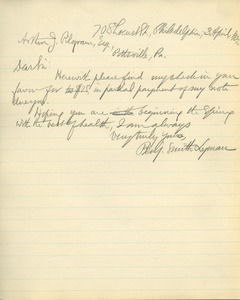 708 Locust St., Philadelphia, 3 April
Arthur J. Pilgram, Esq.,
Pottsville, Pa.
Dear Sir:
Herewith please find my check in your
favor for $25 in partial payment of my note
Hoping you are beginning the Spring
with the best of health, I am always
Very truly yours,
Philip Smith Lyman